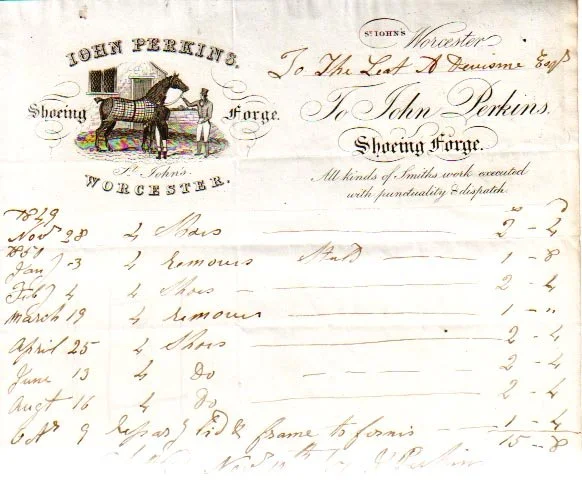 JOHN PERKINS.
Shoeing Forge.
St. John's.
WORCESTER.
ST JOHN'S Worcester
To The Leat A Devisme Esqr
To John Perkins.
Shoeing Forge.
All kinds of Smiths work executed
with punctuality & dispatch.
1849
Novr 28 4 Shoes 2 - 4
1850
Jany 3 4 removes 1 - 8
Feby 4 4 Shoes 2 - 4
March 19 4 removes 1 - "
April 25 4 Shoes 2 - 4
June 13 4 Do 2 - 4
Augt 16 4 Do 2 - 4
9 frame to 1 - 4
15 - 8